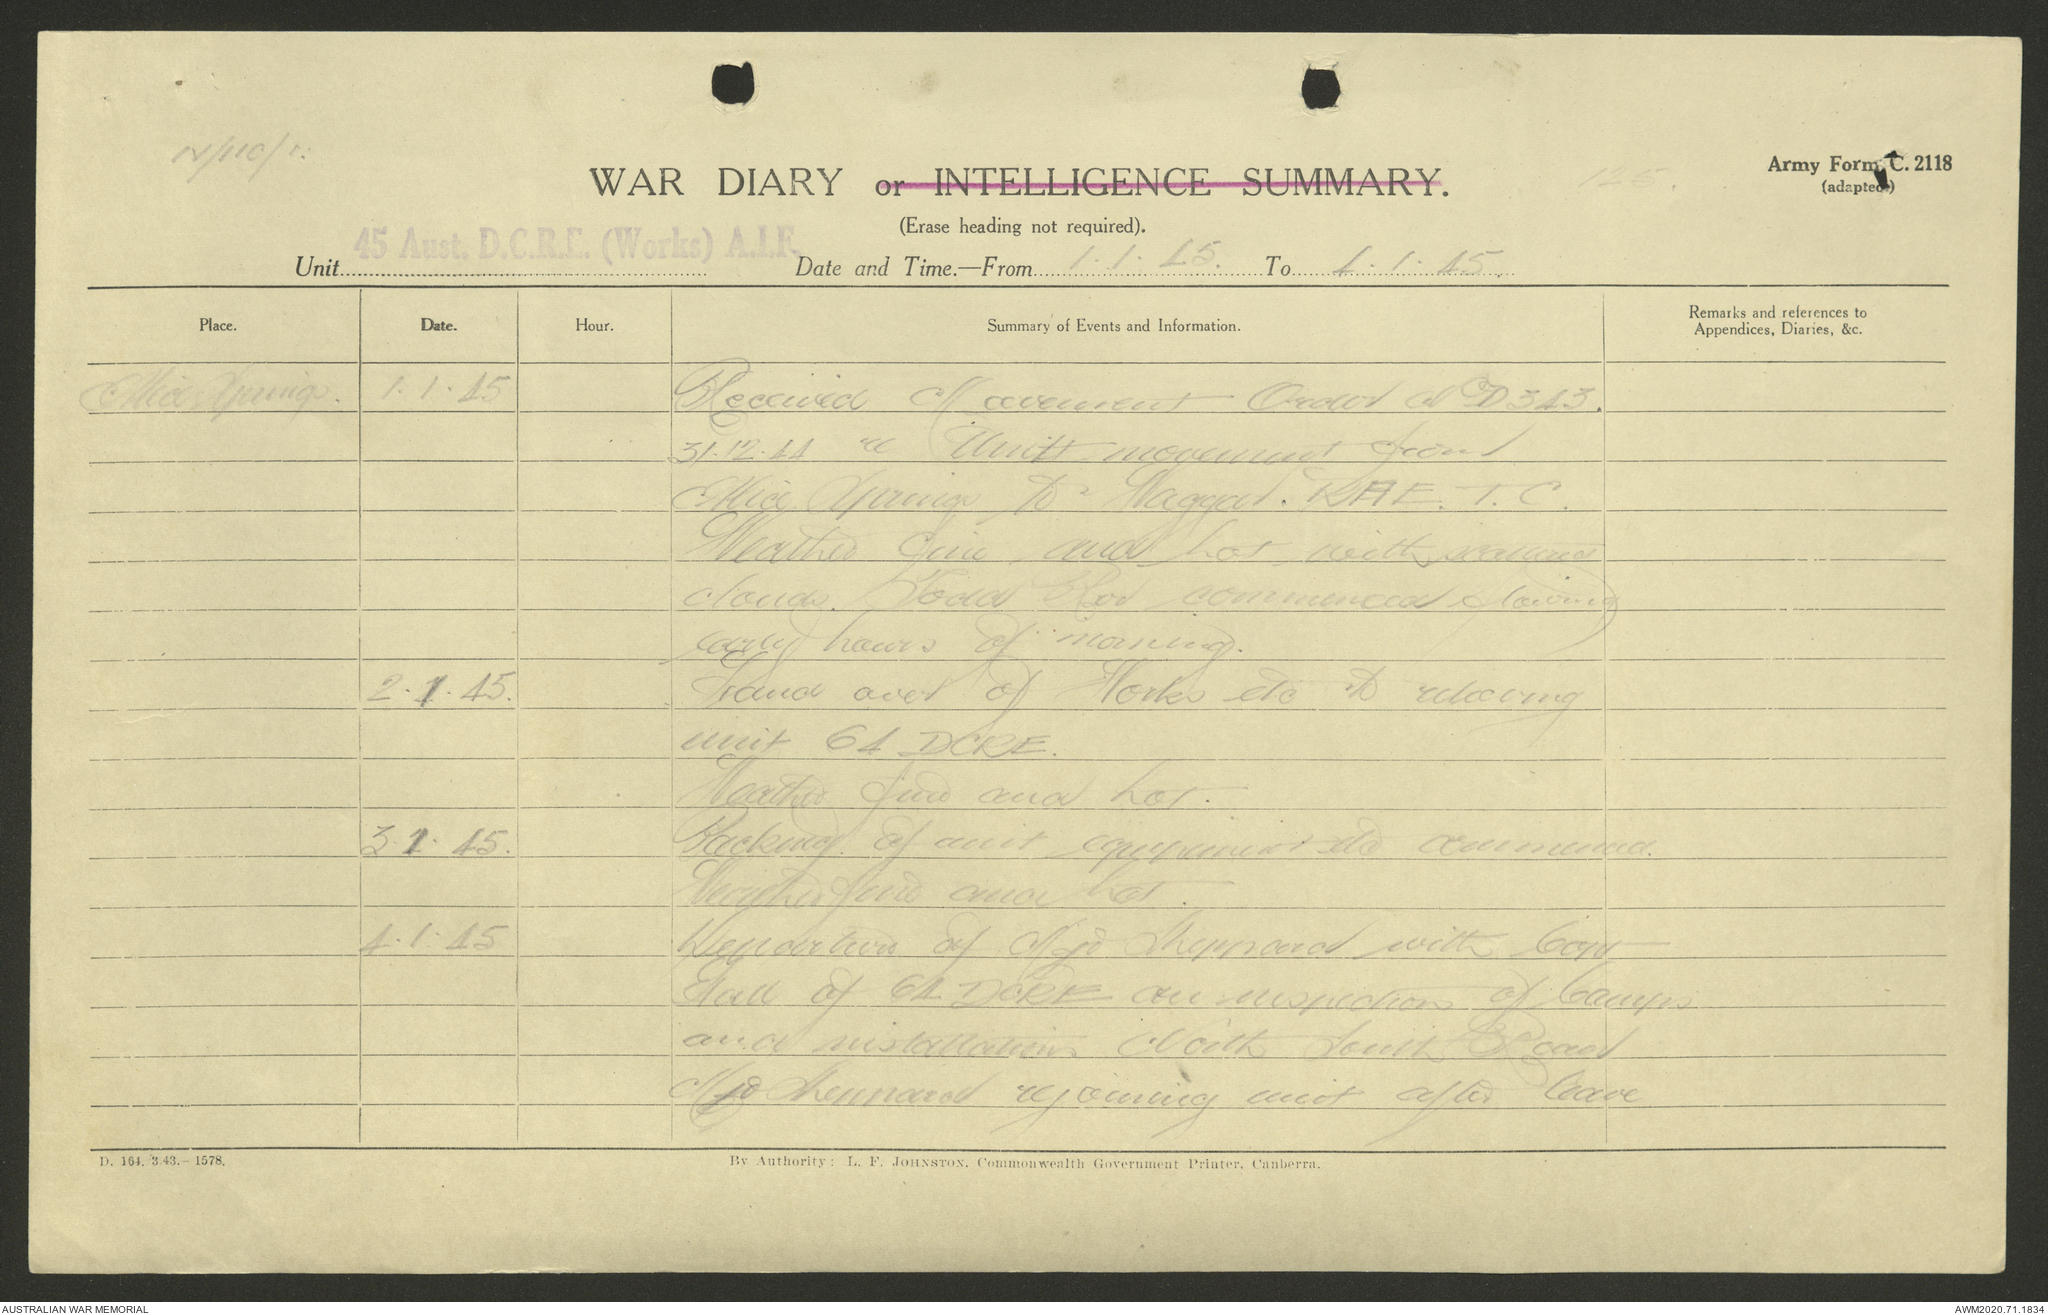 WAR DIARY or INTELLIGENCE SUMMARY.
125.
Army Form C. 2118
(adapted)
(Erase heading not required).
45 Aust. D.C.R.E. (Works) A.I.F.
Unit Date and Time.—From 1.1.45. To 4.1.45.
Place. Date. Hour. Summary of Events and Information. Remarks and references to
Appendices, Diaries, &c.
Alice Springs. 1.1.45 Received Movement Order No D343.
31.12.44 re Unit movement from
Alice Springs to Wagga. RAE. T.C.
Weather fine and hot with scattered
clouds. Todd River commenced flowing
early hours of morning.
2.1.45. Hand over of Works etc to relieving
unit 64 DCRE.
Weather fine and hot.
3.1.45. Packing of unit equipment etc commenced.
Weather fine and hot.
4.1.45 Departure of Mjr Sheppard with Capt
Hall of 64 DCRE on inspection of Camps
and installations North South Road
Mjr Sheppard rejoining unit after leave
D. 164. 3.43.—1578.
By Authority: L. F. JOHNSTON, Commonwealth Government Printer, Canberra.
AUSTRALIAN WAR MEMORIAL
AWM2020.71.1834